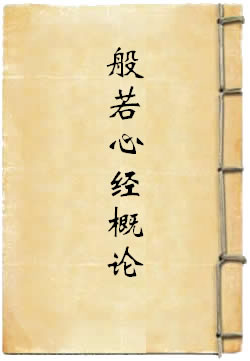 般若心经概论